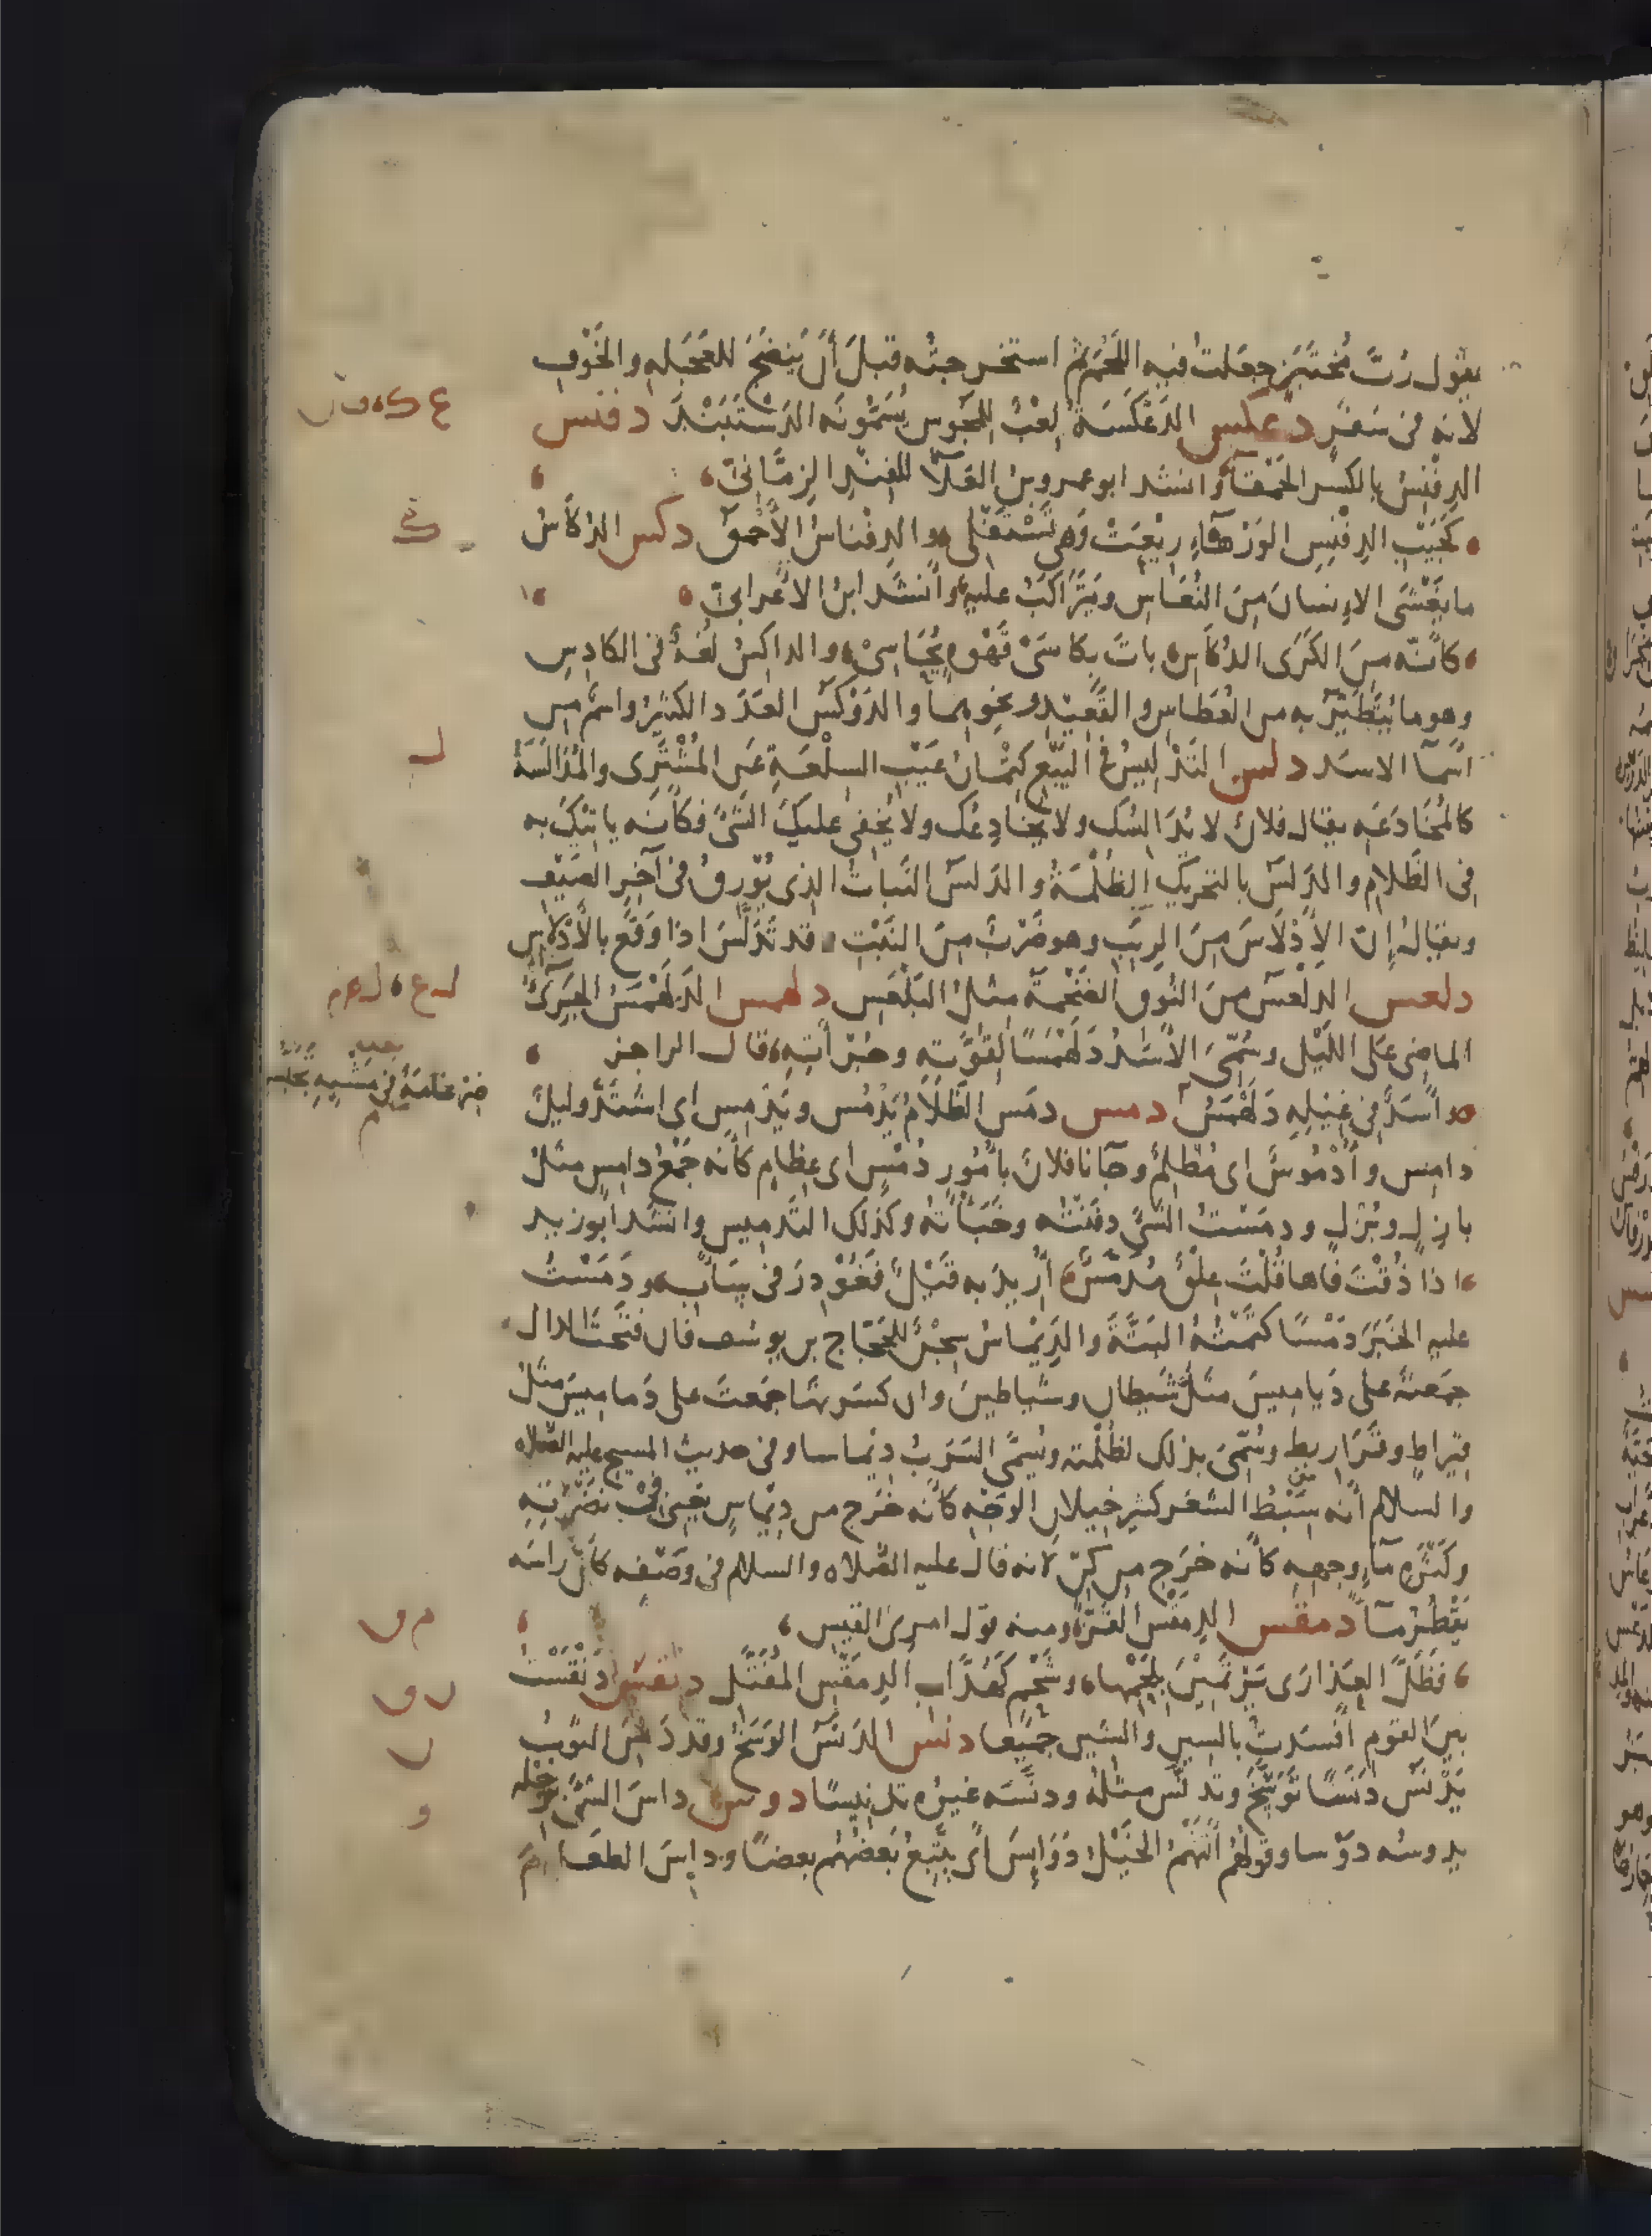 يقول رُبَّ مُختَبَزٍ جعلت فيه اللحم ثم استخرجته قبل أن ينضج للعجلة والخوف
لانه في سفر دعكس الدَعْكَسَةُ لعْبُ المجوس يُسَمُّونَه الدَسْتَبَنْدَ دفنس
الدِفْنِسُ بالكسر الحَمْقاءُ وانشد ابو عمرو بن العَلاء للفِنْدِ الزِمَّانيّ
كَجَيْبِ الدِفْنِسِ الوَرْهَاءِ رِيْعَتْ وَهي تَسْتَفْلي والدِفْناسُ الأحْمَقُ دكس الدُكاسُ
ما يَغْشَى الانسانَ من النُعَاسِ ويَتَرَاكَبُ عليه وأنشد ابنُ الاعْرابيّ
كأنّه من الكَرَى الدُكاسِ باتَ بكاسَيْ قَهْوةٍ يُحَاسِي والداكِسُ لُغةٌ في الكادِس
وهو ما يُتَطَيَّرُ به من العُطاس والقَعِيْد ونحوهما والدَوْكَسُ العَدَد الكثيرُ واسمٌ من
اسما الاسد دلس التَدْلِيسُ في البَيْع كِتْمانُ عَيْب السِلْعَةِ عن المُشْتَرِى والمُدَالَسَةُ
كالمُخَادَعَه يقال فلانٌ لا يُدَالسُك ولا يخادِعُك ولا يُخفي عليكَ الشَيءَ فكأنه ياتيْكَ به
في الظَلامِ والدَلَسُ بالتحريك الظُلْمَةُ والدَلَسُ النَباتُ الذي يُوْرِقُ في آخِرِ الصَيْف
ويقال إنّ الأدْلاَسَ من الرِبَبِ وهو ضَرْبٌ من النَبْتِ قد تَدَلَّسَ اذا وَقَع بالأدْلاس
دلعس الدَلْعَسُ من النُوق الضَخْمَةُ مثل البَلْعَس دلهمس الدَلَهْمَسُ الجَرِيءُ
الماضي على الليْل وسُمّيَ الأسَدُ دَلَهْمَسًا لقُوَّتِه وجُرْأتِه قال الراجز
ضِرغامَةٌ في مَشْيِه
وأسَدٌ في غِيْلِهِ دَلَهْمَسُ دمس دمَس الظَلامُ يَدْمُس ويَدْمِس اى اشتدَّ وليلٌ
دامِس وأدْمُوسٌ اى مُظْلِمٌ وجآنا فلانٌ بأمُورٍ دُمْسٍ اى عِظامٍ كأنه جَمْعُ دامِسٍ مثل
بازِلٍ وبُزْلٍ ودمَسْتُ الشَيءَ دفَنْتُه وخَبَأتُه وكذلك التَدميس وانشد أبو زيد
اذا ذُقْتَ فاها قُلْتَ عِلْقٌ مُدَمَّسٌ أُريدَ به قَيْلٌ فَغُوْدِرَ في سَأبِ ودَمَسْتُ
عليه الخَبَرَ دَمْسًا كتَمْتُهُ البَتَّةَ والدِيْمَاسُ سِجْنٌ للحَجَّاج بن يوسُف فان فتَحْتَ الدال
جَمَعتَه على دَيامِيسَ مثل شَيطانٍ وشياطينَ وان كسَرتها جَمعتَ على دَمامِيسَ مثلُ
قيراطٍ وقَرَاريطِ وسُمّيَ بذلك لظُلْمته ويُسمَّى السَرَبُ ديْماسا وفي حديث المسيح عليه الصلاه
والسلام أنه سَبْطُ الشعر كثير خِيلان الوَجْهِ كأنه خرَج من ديْماسٍ يعني في نَضْرتِه
وكَثْرةِ ماءِ وجهِه كأنه خرَج من كِنٍّ لانه قال عليه الصلاه والسلام في وَصْفه كأنّ راسَه
يَقْطُرُ مآءً دمقس الدِمَقْسُ القَزُّ ومنه قول امرئ القيس
فظلَّ العذارَى يَرْتَمِيْنَ بلَحْمِها وشَحْمٍ كهُدّابِ الدِمَقْسِ المُفَتَّل دنقس دَنْقَسْتُ
بينَ القوم أفْسَدتُ بالسين والشين جميعا دنس الدَنَسُ الوَسَخُ وقد دَنِسَ الثوبُ
يَدْنَسُ دَنَسًا تَوَسَّخَ وتَدَنَّس مثلُه ودَنَّسَه غيرُه تدنيسًا دوس داسَ الشيءَ برِجْله
يدوسُه دَوْسا وقولُهُم أتَتْهُم الخَيْلُ دَوَايِسَ أى يَتْبَعُ بَعْضُهُم بعضًا وداسَ الطعامَ